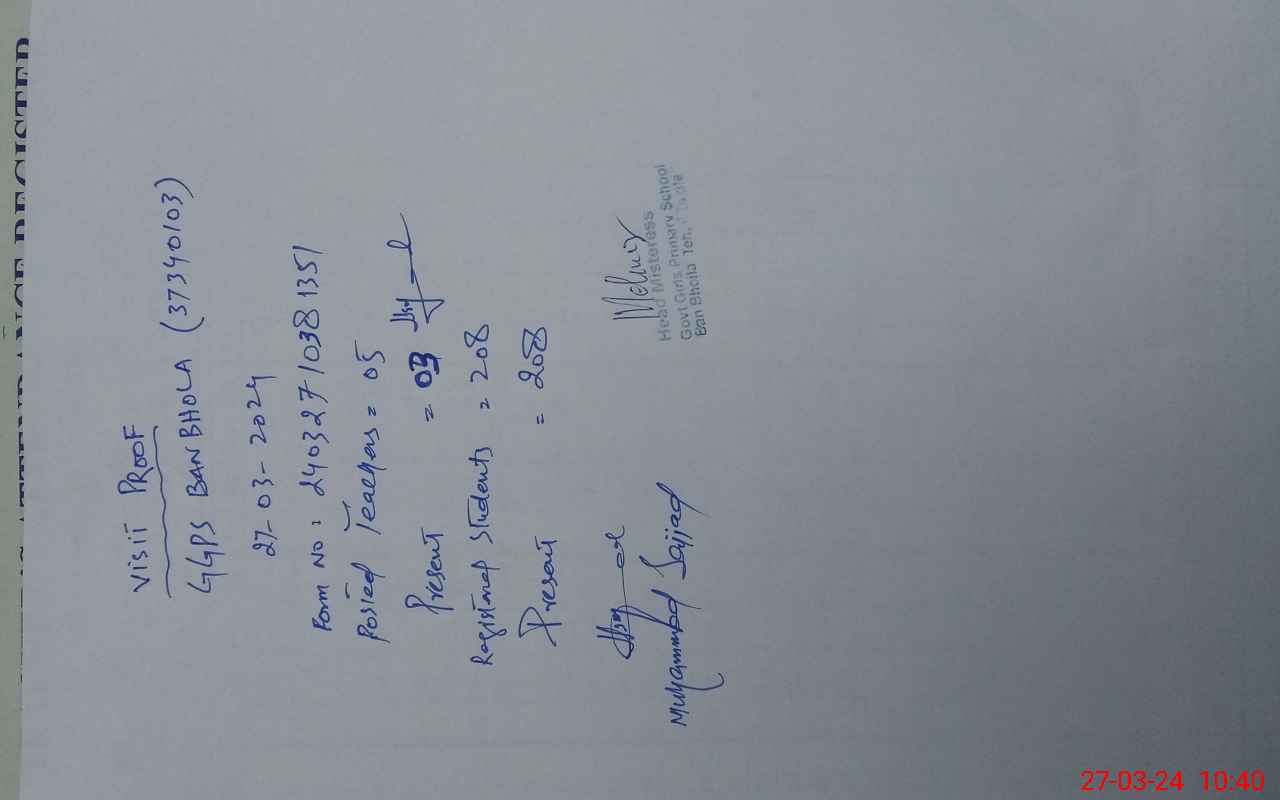 ATTENDANCE REGISTER
VISIT PROOF
GGPS BANBHOLA (37340103)
27-03-2024
Form No: 24032710381351
Posted Teachers = 05
Present = 03
Registered Students = 208
Present = 208
Muhammad Sajjad
Head Misteress
Govt Girls Primary School
Ban Bhoila Teh.
27-03-24 10:40